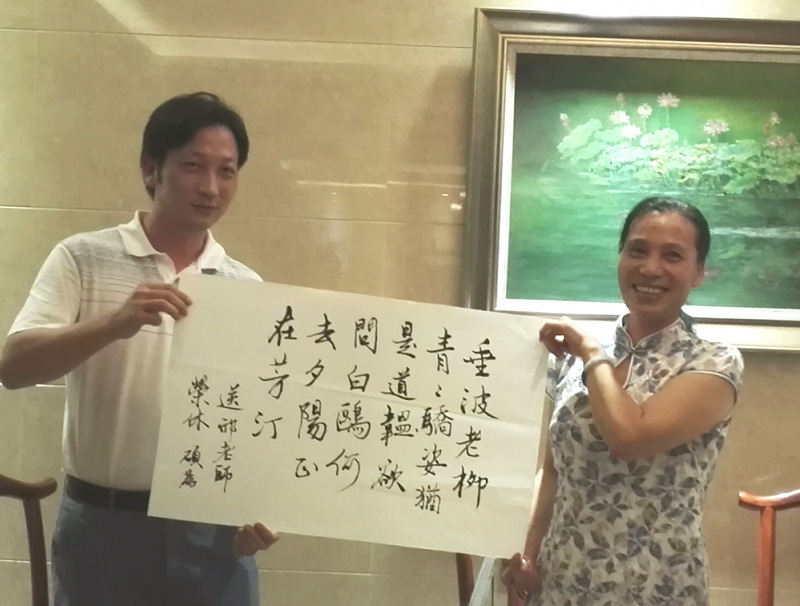 垂波老柳
青々驕姿猶
是道韞欲
問白鷗何
去夕陽正
在芳汀
送祁老師
榮休 碩為